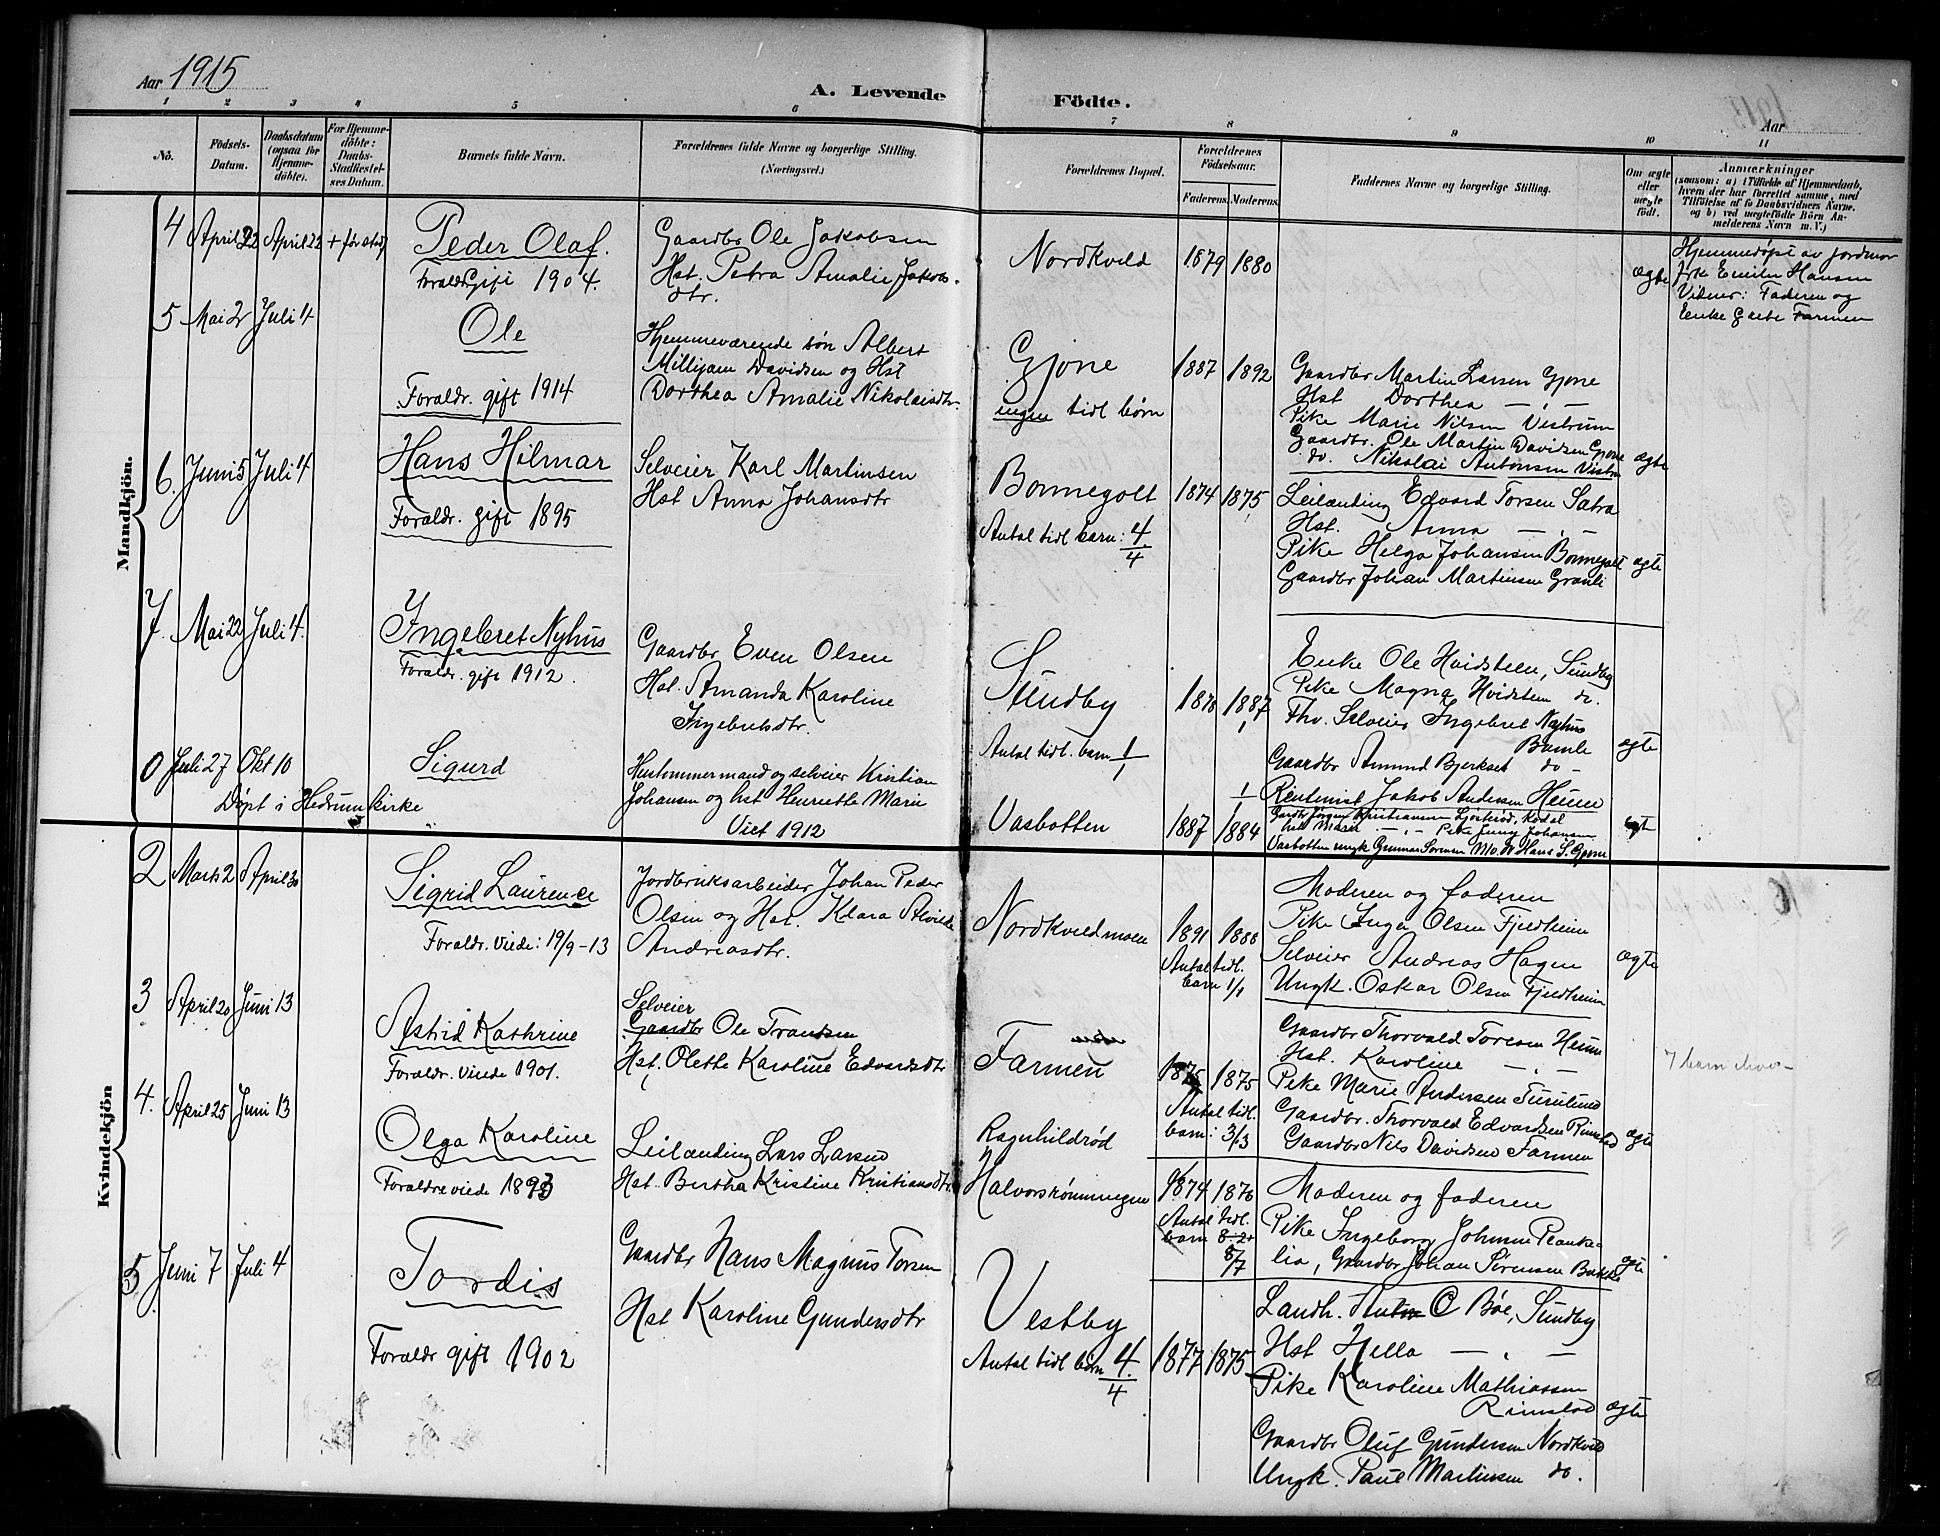 Aar 1915
A. Levende Födte.
Aar
1 2 3 4 5 6 7 8 9 10 11
No.
Födsels-
Datum.
Daabsdatum
(ogsaa for
Hjemme-
döbte).
For Hjemme-
döbte:
Daabs-
Stadfæstel-
ses Datum.
Barnets fulde Navn.
Forældrenes fulde Navne og borgerlige Stilling.
(Næringsvei.)
Forældrenes Bopæl.
Forældrenes
Födselsaar.
Faderens. Moderens.
Faddernes Navne og borgerlige Stilling.
Om ægte
eller
uægte
födt.
Anmærkninger
(saasom: a) i Tilfælde af Hjemmedaab,
hvem der har forrettet samme, med
Tilföielse af to Daabsvidners Navne,
og b) ved uægtefödte Börn An-
melderens Navn m. V.)
Mandkjön.
4 April 22 April 22 + før stadf
Peder Olaf.
Foraldr. Gift 1904.
Gaardbr Ole Jakobsen
Hst. Petra Amalie Jakobs-
dtr.
Nordkveld 1879 1880
ægte
Hjemmedøpt av jordmor
Frk Emilie Hansen
Vidner: Faderen og
Enke Farmen
5 Mai 2 Juli 4
Ole
Foraldr. gift 1914
Hjemmeværende søn Albert
Milljam Davidsen og Hst
Dorthea Amalie Nikolaisdtr.
Gjone
ingen tidl børn
1887 1892
Gaardbr Martin Larsen Gjone
Hst Dorthea — „ —
Pike Marie Nilsen Vestrum
Gaardbr. Ole Martin Davidsen Gjone
do. Nikolai Antonsen Vestrum
ægte
6. Juni 5 Juli 4
Hans Hilmar
Foraldr. gift 1895
Selveier Karl Martinsen
Hst Anna Johansdtr
Bonnegolt
Antal tidl barn: 4/4
1874 1875
Leilænding Edvard Torsen Satra
Hst. Anna — „ —
Pike Helga Johansen Bonnegolt
Gaardbr Johan Martinsen Granli
ægte
7. Mai 22 Juli 4.
Ingebret Nyhus
Foraldr. gift 1912.
Gaardbr Even Olsen
Hst. Amanda Karoline
Ingebretsdtr.
Sundby
Antal tidl. barn 1/1
1878 1887
Enke Ole Hvidsteen, Sundby
Pike Magna Hvidsten do.
Fhv. Selveier Ingebret Nyhus
Bamle
Gaardbr Amund Bjerkset do—
Rentenist Jakob Andersen Heum
ægte
0 Juli 27 Okt 10
Døpt i Hedrum kirke
Sigurd
Hustømmermand og selveier Kristian
Johansen og hst Henriette Marie
Viet 1912
Vasbotten 1887 1884
Gardbr Jørgen Kristiansen Kodal
hst Marie — „ — Pike Jenny Johansen
Vasbotten ungk Gunnar Sørensen Hans S. Gjone
egt
Kvindekjön
2 Marts 2 April 30
Sigrid Laurence
Foraldr. viede: 19/9-13
Jordbruksarbeider Johan Peder
Olsen og Hst. Klara Alvilde
Andreasdtr.
Nordkveldmoen 1891 1888
Antal tidl.
barn 1/1
Moderen og faderen
Pike Inga Olsen Fjeldheim
Selveier Andreas Hagen
Ungk. Oskar Olsen Fjeldheim
ægte
3 April 20 Juni 13
Astrid Kathrine
Foraldr. viede 1901.
Selveier
Gaardbr Ole Trandsen
Hst. Olette Karoline Edvardsdtr
Farmen
1875 1875
Antal tidl.
barn: 3/3
Gaardbr Thorvald Toresen Heum
Hst. Karoline — „ —
Pike Marie Andersen
Gaardbr. Thorvald Edvardsen Rimstad
Gaardbr Nils Davidsen Farmen
ægte
7 barn
4. April 25 Juni 13
Olga Karoline
Foraldre viede 1893
Leilænding Lars Larsen
Hst. Bertha Kristine Kristiansdtr.
Ragnhildrød
Halvorsrømningen
1874 1876
Antal tidl.
barn 8-2
8/7
Moderen og faderen
Pike Ingeborg Johnsen Planke-
lia, Gaardbr Johan Sørensen Bakke
ægte
5 Juni 7 Juli 4
Tordis
Foraldr gift 1902
Gaardbr Hans Magnus Torsen
Hst Karoline Gundersdtr
Vestby
Antal tidl børn 4/4
1877 1875
Landh. Anton O Bøe, Sundby
Hst Hella — „ —
Pike Karoline Mathiassen
Rimstad
Gaardbr Oluf Gundersen Nordkveld
Ungk. Paul Martinsen do.
ægte